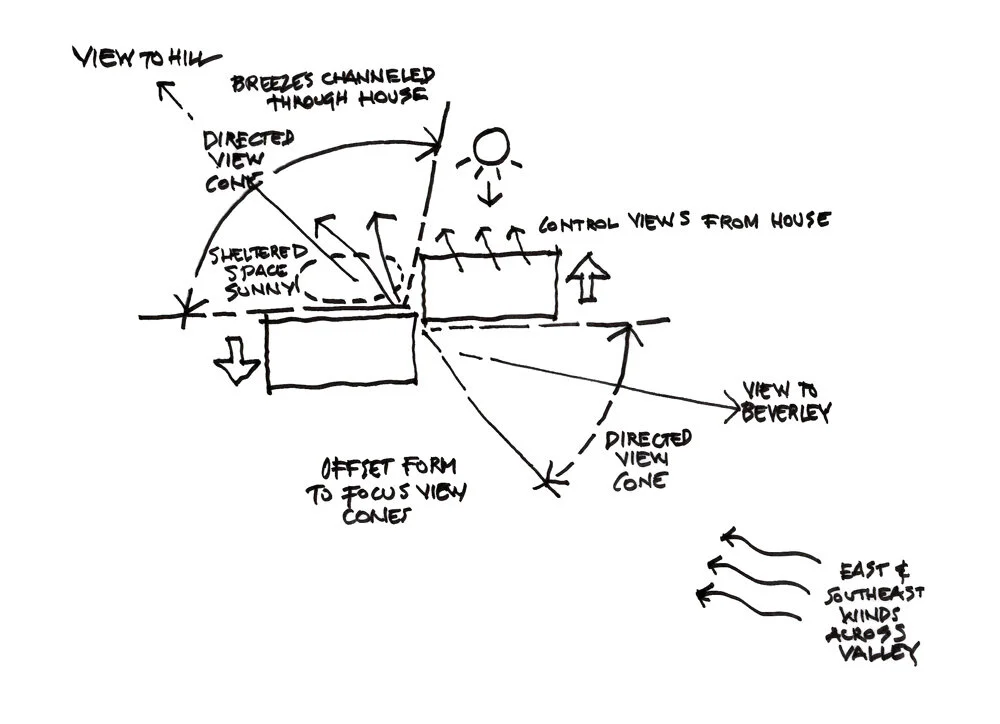 VIEW TO HILL
BREEZES CHANNELED
THROUGH HOUSE
DIRECTED
VIEW
CONE
CONTROL VIEWS FROM HOUSE
SHELTERED
SPACE
SUNNY
VIEW TO
BEVERLEY
DIRECTED
VIEW
CONE
OFFSET FORM
TO FOCUS VIEW
CONES
EAST &
SOUTHEAST
WINDS
ACROSS
VALLEY